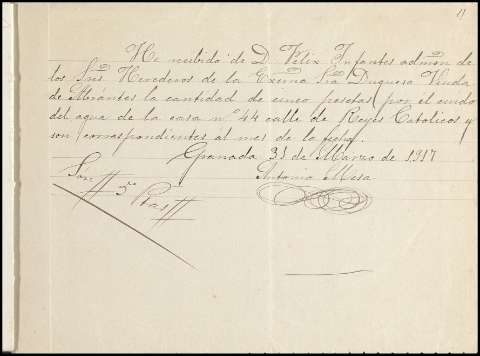 He recibido de D. Felix Infantes admōn de
los Sres Herederos de la Excma Sra Duquesa Viuda
de Abrantes la cantidad de cinco pesetas por el cuido
del agua de la casa nº 44 calle de Reyes Catolicos y
son correspondientes al mes de la fecha.
Granada 31 de Marzo de 1917
Antonio Mesa
Son # 5 Ptas #